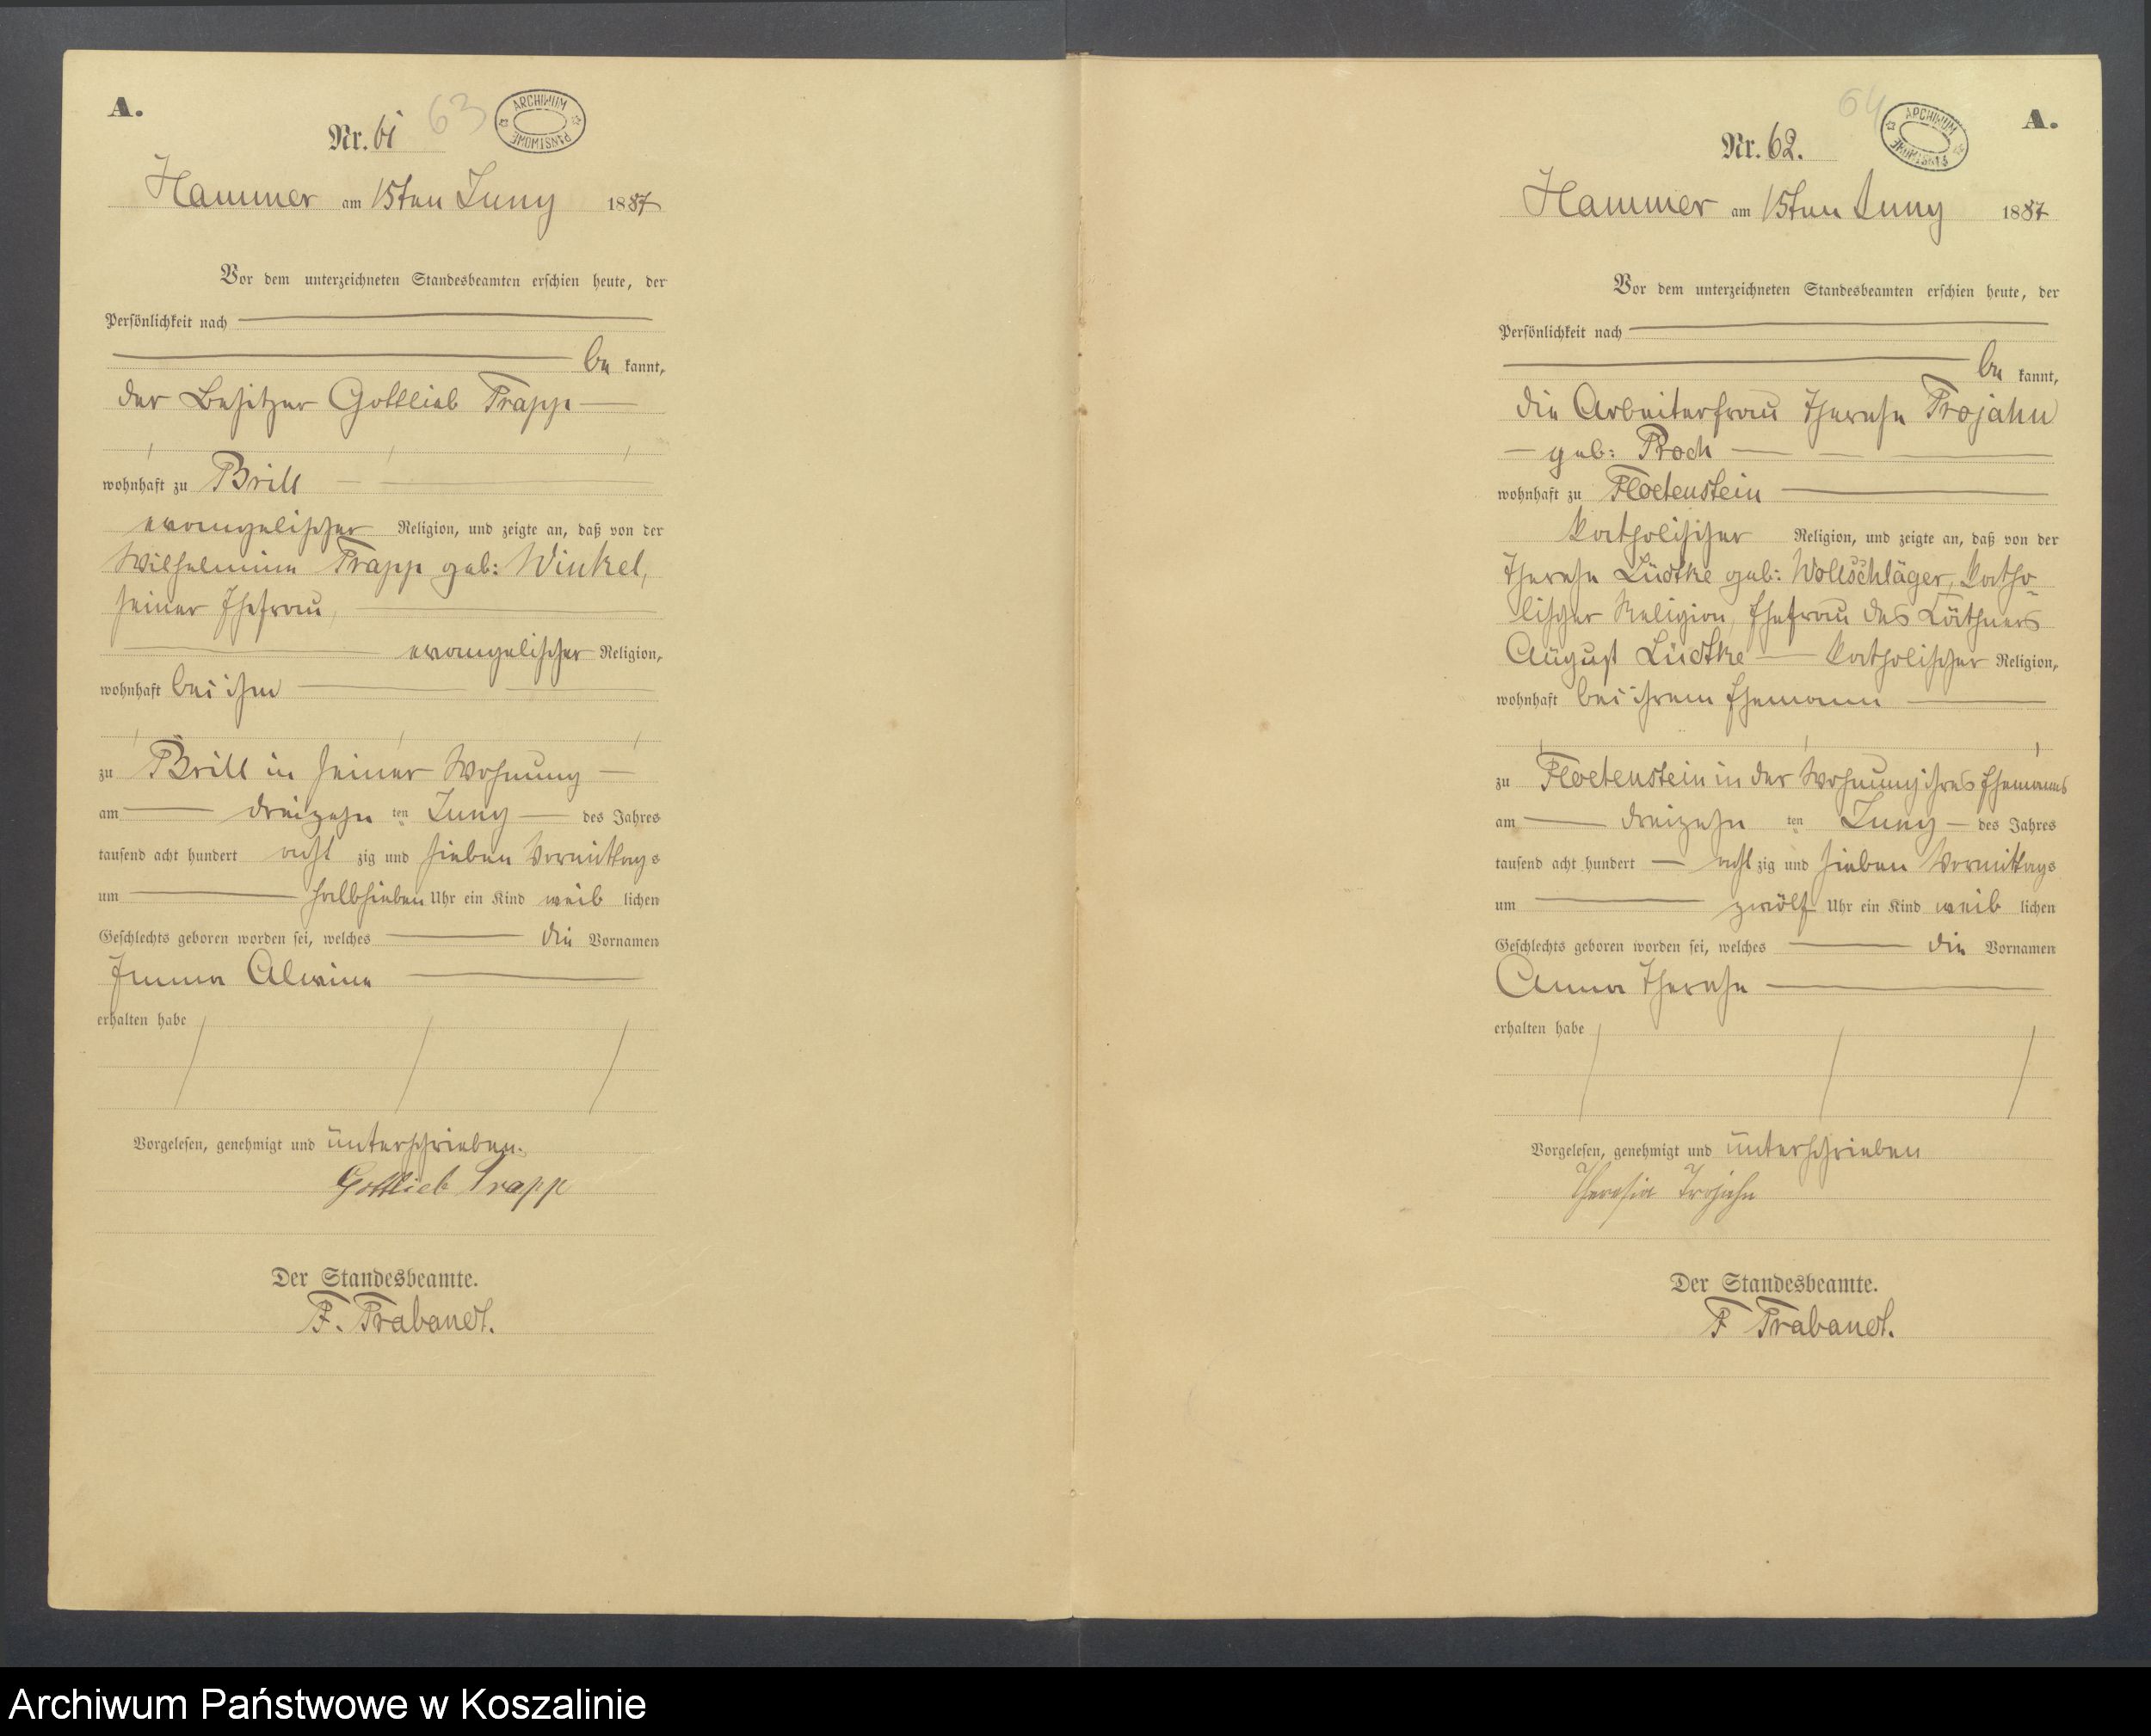 A.
Nr. 61
63
ARCHIWUM PAŃSTWOWE
Hammer am 15ten Juny 1887
Vor dem unterzeichneten Standesbeamten erschien heute, der
Persönlichkeit nach
be kannt,
der Besitzer Gottlieb Trapp
wohnhaft zu Brill
evangelischer Religion, und zeigte an, daß von der
Wilhelmine Trapp geb: Winkel,
seiner Ehefrau,
evangelischer Religion,
wohnhaft bei ihm
zu Brill in seiner Wohnung
am dreizehn ten Juny des Jahres
tausend acht hundert acht zig und sieben Vormittags
um halbsieben Uhr ein Kind weib lichen
Geschlechts geboren worden sei, welches die Vornamen
Emma Alwine
erhalten habe
Vorgelesen, genehmigt und unterschrieben.
Gottlieb Trapp
Der Standesbeamte.
F. Trabandt.
64
ARCHIWUM PAŃSTWOWE
A.
Nr. 62.
Hammer am 15ten Juny 1887
Vor dem unterzeichneten Standesbeamten erschien heute, der
Persönlichkeit nach
be kannt,
die Arbeiterfrau Therese Trojahn
geb: Proch
wohnhaft zu Floetenstein
katholischer Religion, und zeigte an, daß von der
Therese Lüdtke geb: Wollschläger, katho-
lischer Religion, Ehefrau des Käthners
August Lüdtke katholischer Religion,
wohnhaft bei ihrem Ehemann
zu Floetenstein in der Wohnung ihres Ehemanns
am dreizehn ten Juny des Jahres
tausend acht hundert acht zig und sieben Vormittags
um zwölf Uhr ein Kind weib lichen
Geschlechts geboren worden sei, welches die Vornamen
Anna Therese
erhalten habe
Vorgelesen, genehmigt und unterschrieben
Theresia Trojahn
Der Standesbeamte.
F Trabandt.
Archiwum Państwowe w Koszalinie